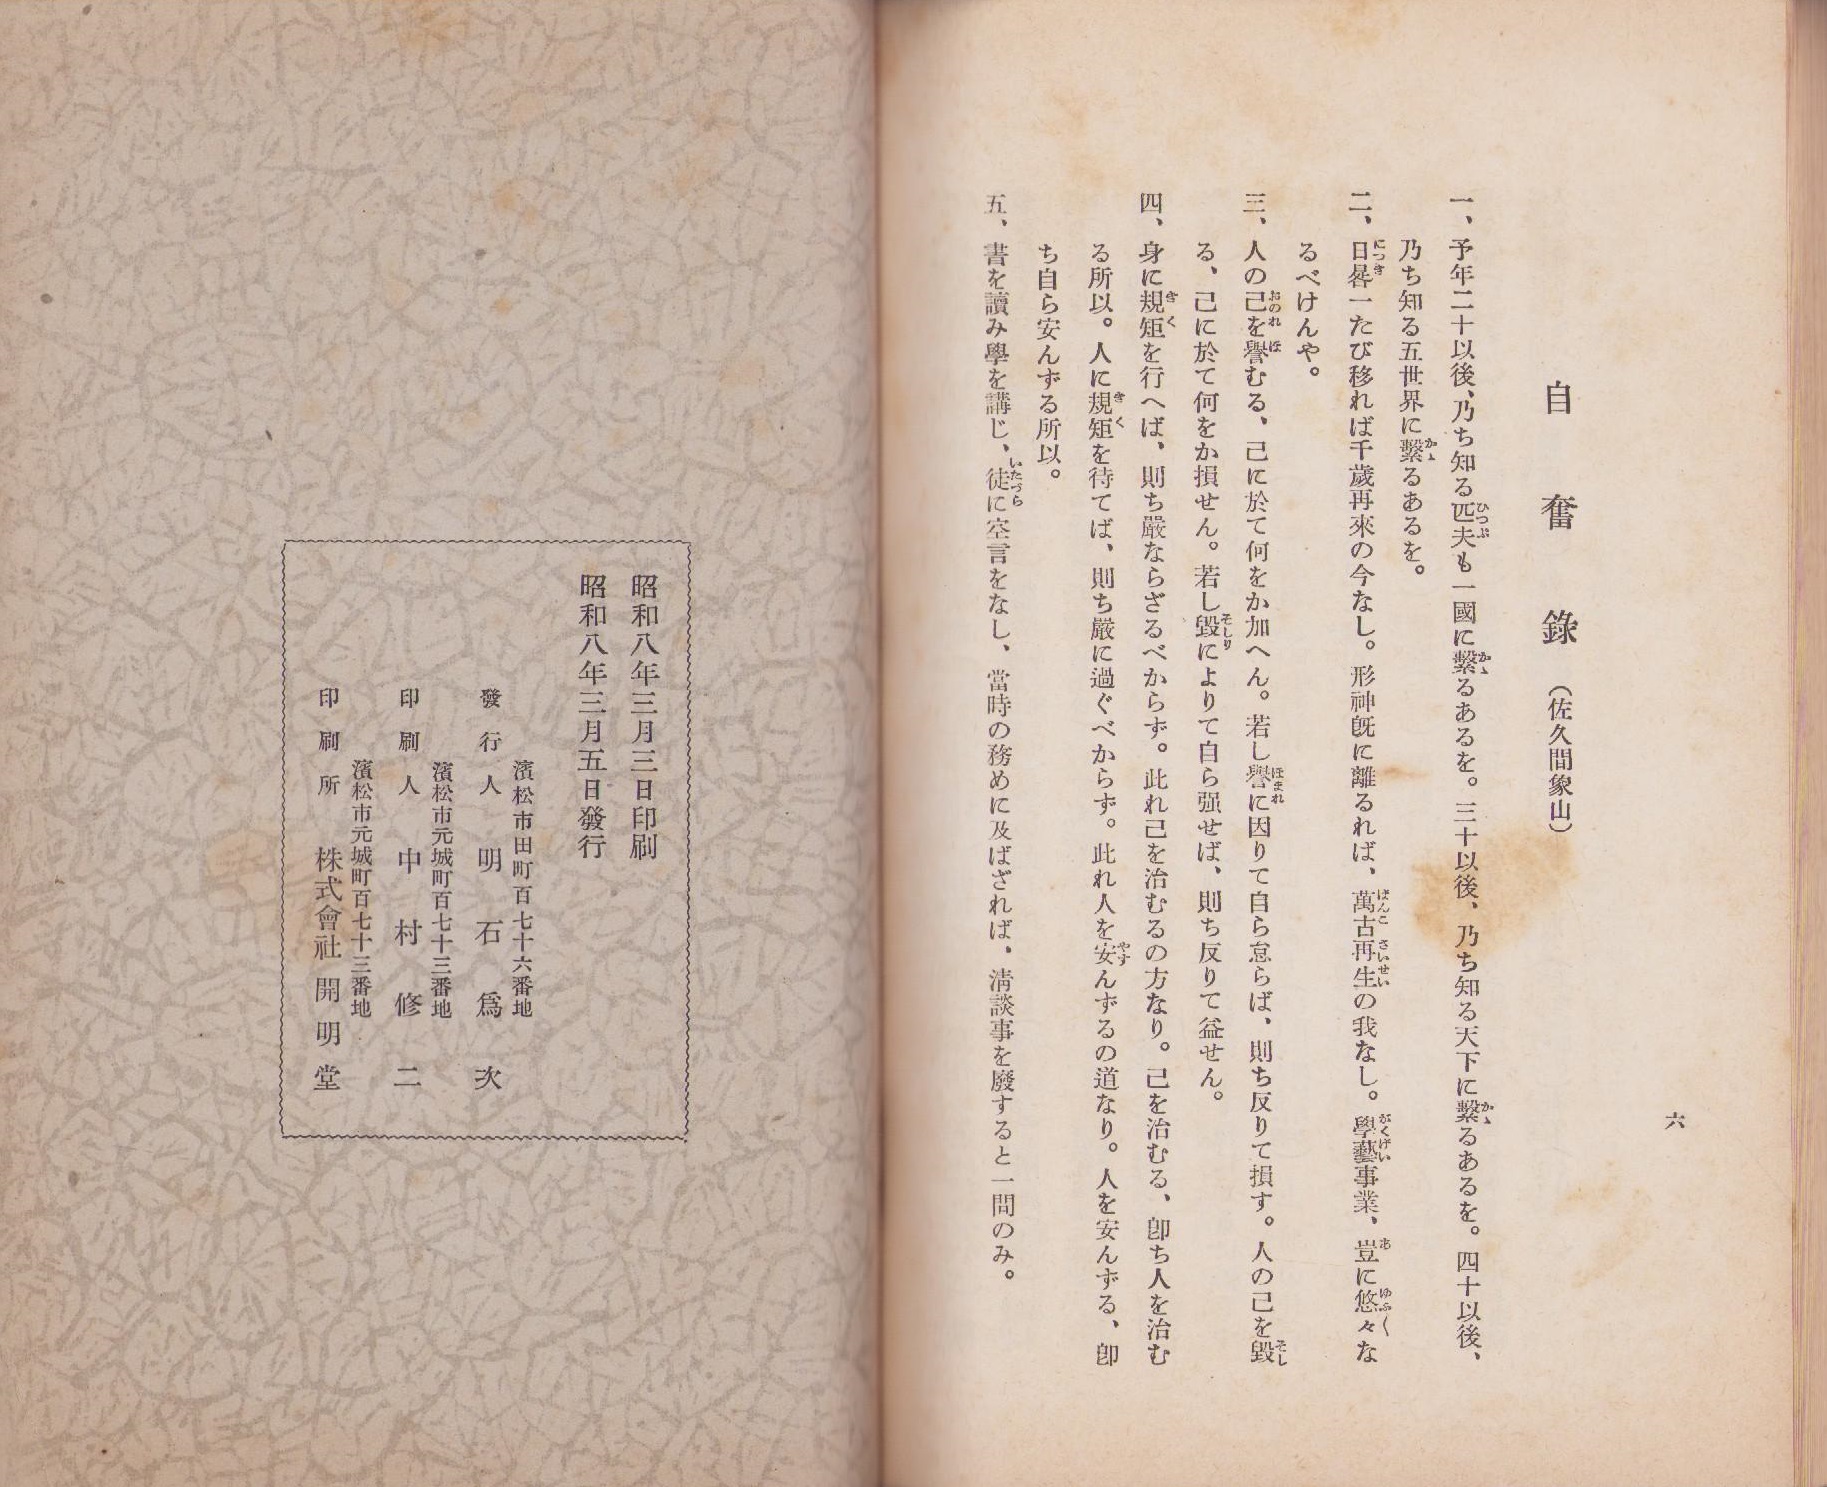 六
自奮錄（佐久間象山）
一、予年二十以後、乃ち知る匹夫も一國に繫るあるを。三十以後、乃ち知る天下に繫るあるを。四十以後、
乃ち知る五世界に繫るあるを。
二、日晷一たび移れば千歲再來の今なし。形神旣に離るれば、萬古再生の我なし。學藝事業、豈に悠々な
るべけんや。
三、人の己を譽むる、己に於て何をか加へん。若し譽に因りて自ら怠らば、則ち反りて損す。人の己を毀
る、己に於て何をか損せん。若し毀によりて自ら强せば、則ち反りて益せん。
四、身に規矩を行へば、則ち嚴ならざるべからず。此れ己を治むるの方なり。己を治むる、卽ち人を治む
る所以。人に規矩を待てば、則ち嚴に過ぐべからず。此れ人を安んずるの道なり。人を安んずる、卽
ち自ら安んずる所以。
五、書を讀み學を講じ、徒に空言をなし、當時の務めに及ばざれば、淸談事を廢すると一間のみ。
昭和八年三月三日印刷
昭和八年三月五日發行
濱松市田町百七十六番地
發行人 明石爲次
濱松市元城町百七十三番地
印刷人 中村修二
濱松市元城町百七十三番地
印刷所 株式會社開明堂